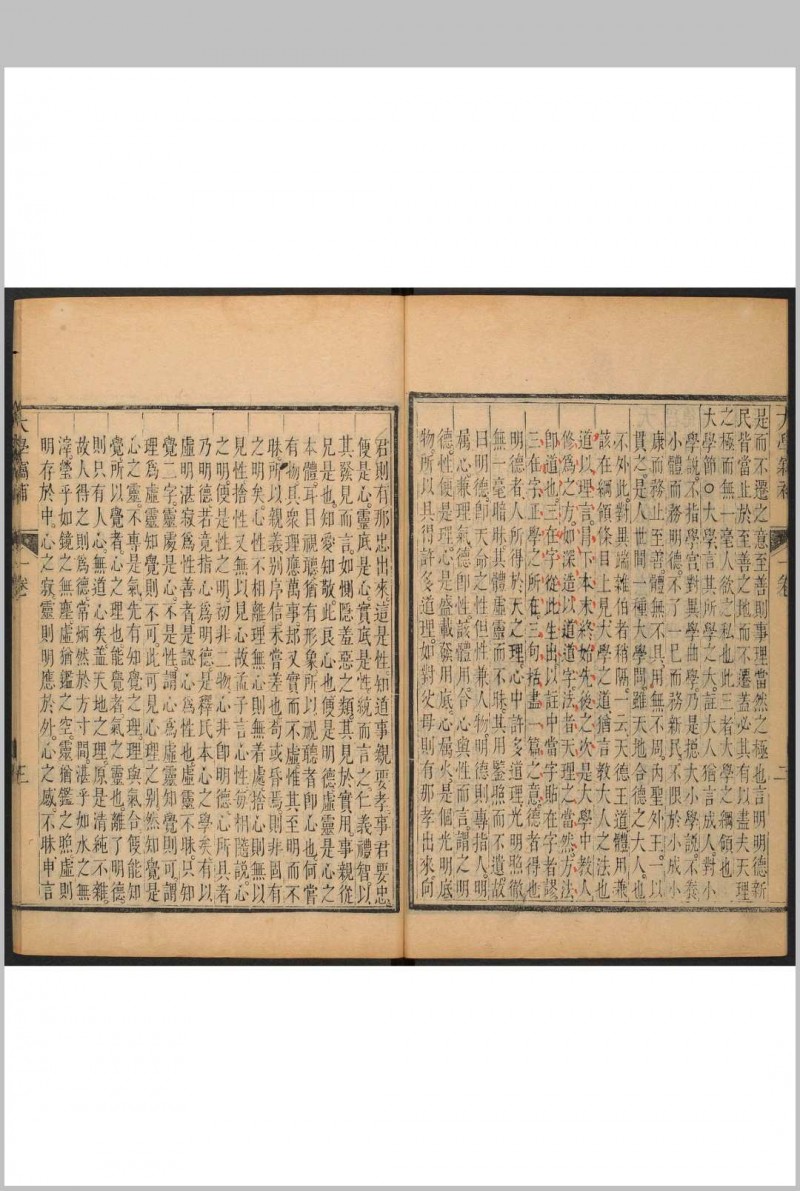 是而不遷之意至善則事理當然之極也言明明德新
民皆當止於至善之地而不遷蓋必其有以盡夫天理
之極而無一毫人欲之私也此三者大學之綱領也
大學節○大學言其所學之大註大人猶言成人對小
學說不指學宮對異學曲學乃是挹大小學說不務
小體而務明德不了一巳而務新民不限於小成小
康而務止至善體無不具用無不周內聖外王一以
貫之是人世間一種大學問雖天地合德之大人也
不外此對異端雜伯者稍隔一云天德王道體用兼
該在綱領條目上見大學之道猶言教大人之法也
道以理言目下本末終始先後之次是大學中教人
修為之方如深造以道道字法者天理之當然方法
即道也三在字從此生出以註中當字貼在字者謬
三在字正學之所在三句括盡一篇之意德者得也
明德者人所得於天之理心中許多道理光明照徹
無一毫暗昧其體虛靈而不昧其用鑒照而不遺故
曰明德即天命之性但性兼人物明德則專指人明
屬心兼理氣德即性該體用合心與性而言謂之明
德性便是理心是盛載發用底心屬火是個光明底
物所以具得許多道理如對父母則有那孝出來向
君則有那忠出來這是性知道事親要孝事君要忠
便是心靈底是心實底是性統而言之仁義禮智以
其發見而言如惻隱羞惡之類其見於實用事親從
兄是也知愛知敬此良心也便是明德虛靈是心之
本體耳目視聽猶有形象所以視聽者即心也何嘗
有物具眾理應萬事却又實而不虛惟其至明而不
昧所以親義別序信未嘗差也苟或昏焉則非固有
之明矣心性不相離理無心則無着處捨心則無以
見性捨性又無以見心故孟子言心性每相隨說心
之明便是性之明初非二物心非即明德心所具者
乃明德若竟指心為明德是釋氏本心之學矣有以
虛明湛寂為性善者是認心為性也虛靈不昧只知
覺二字靈處是心不是性謂心為虛靈知覺則可謂
理為虛靈知覺則不可此可見心理之別然知覺是
心之靈不專是氣先有知覺之理理與氣合便能知
覺所以覺者心之理也能覺者氣之靈也離了明德
則只有人心無道心矣蓋天地之理原是清純不雜
故人得之則為德常炳然於方寸間湛乎如水之無
滓瑩乎如鏡之無塵虛猶鑑之空靈猶鑑之照虛則
明存於中心之寂靈則明應於外心之感不昧申言
一卷
二
一卷
三